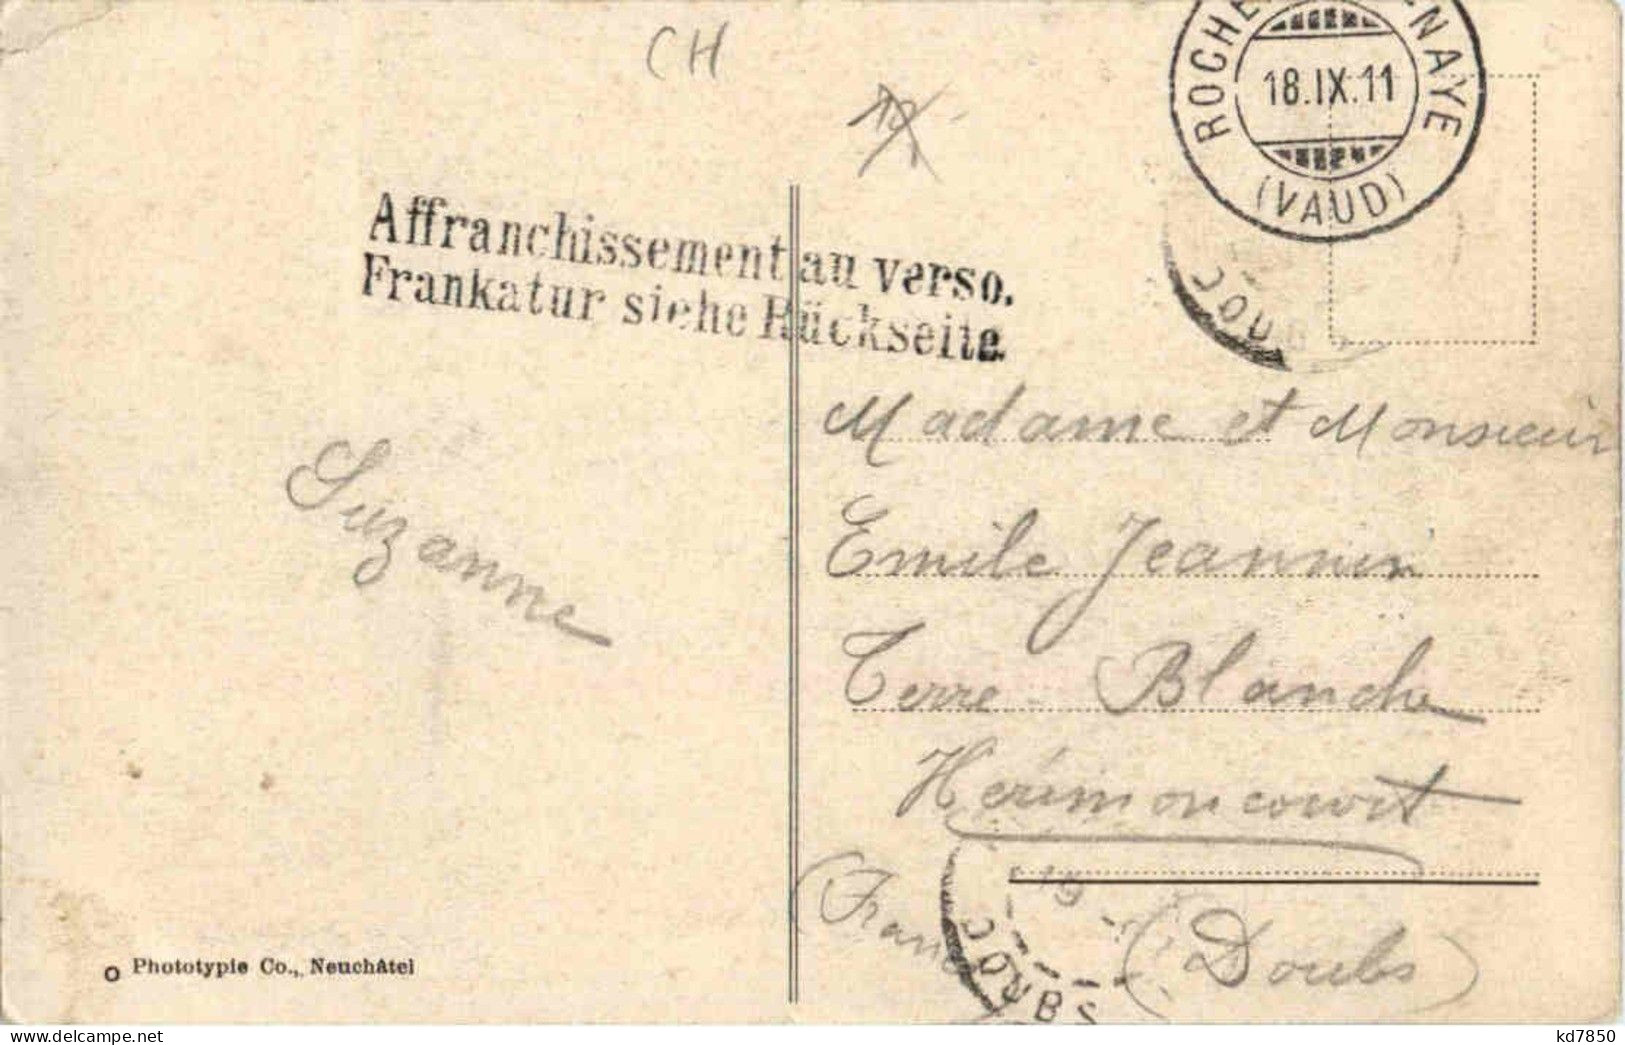 CH
10
18.IX.11
(VAUD)
Affranchissement au verso.
Frankatur siehe Rückseite.
Madame et Monsieur
Suzanne
Emile Jeannin
Terre Blanche
Hérimoncourt
(France)
19
(Doubs)
DOUBS
Phototypie Co., Neuchâtel
kd7850